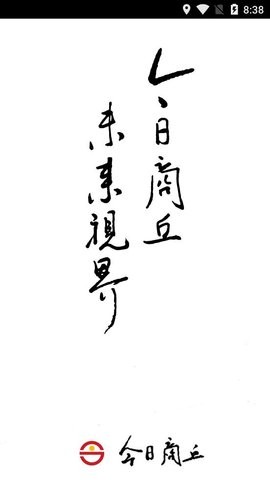 8:38
今日商丘
未来視界
今日商丘